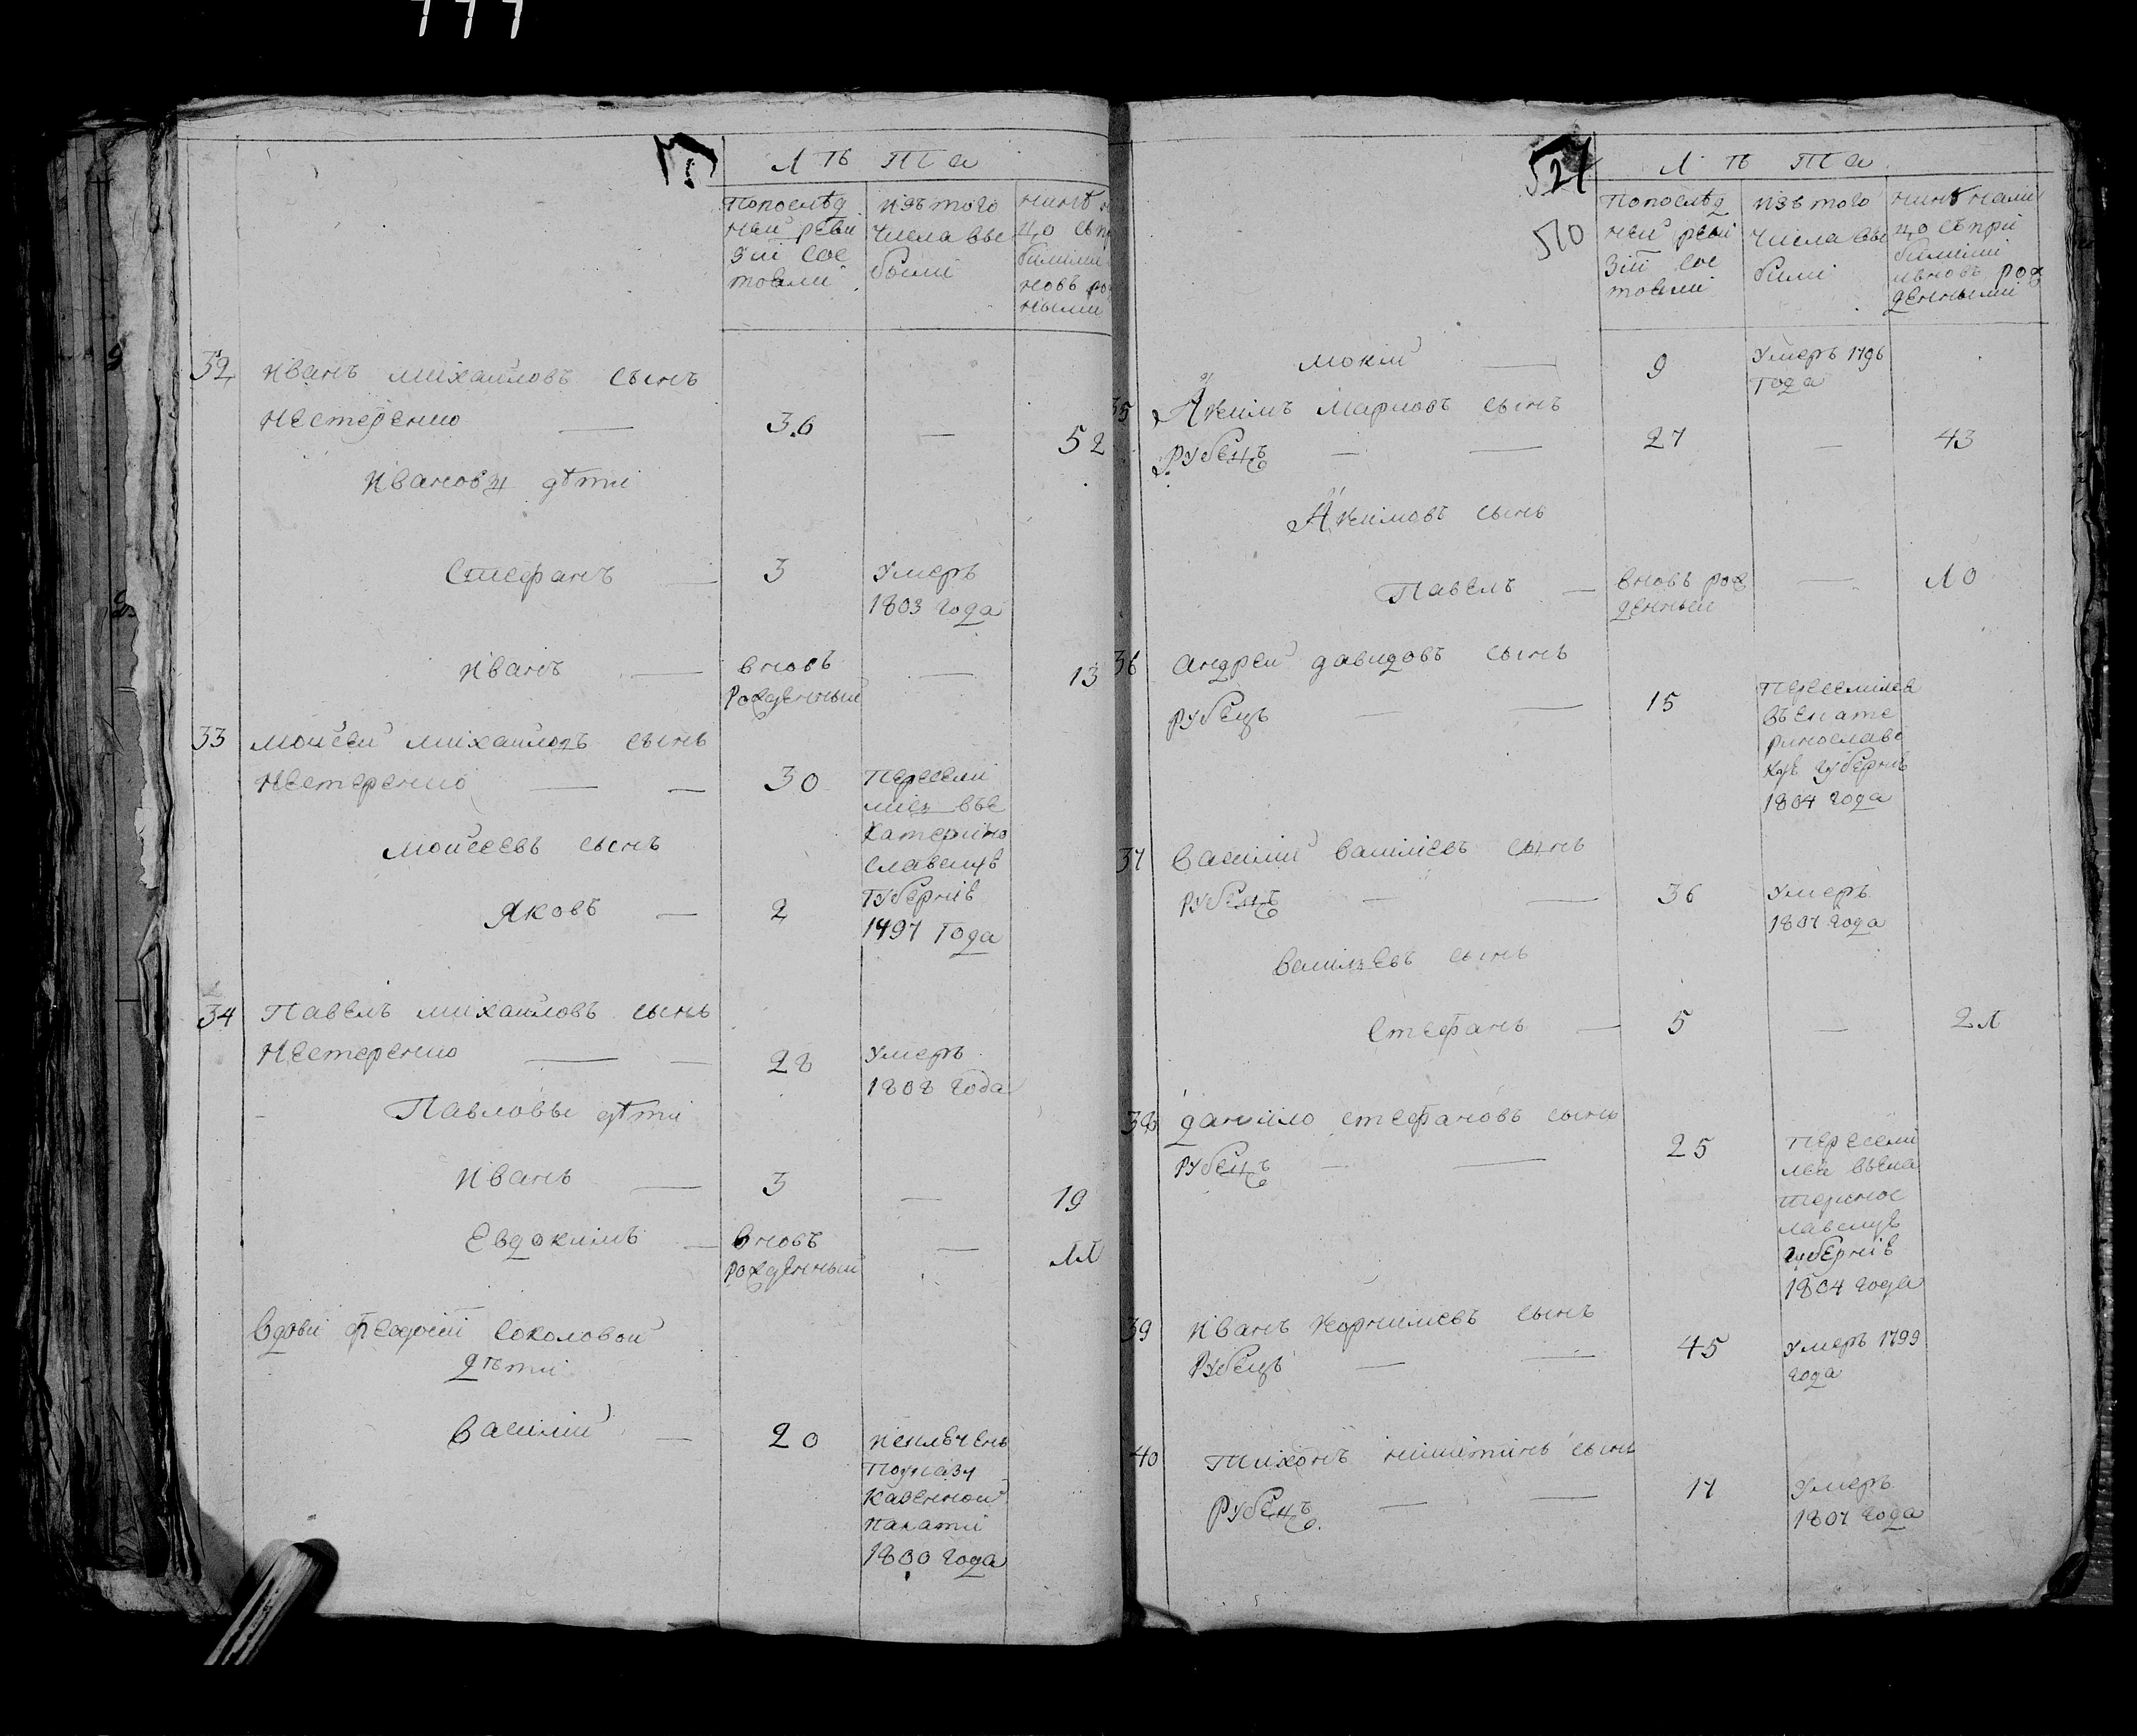 777
Лѣта
Попослѣд
ней реви
зіи сос
тояли
изътого
числа вы
были
нинѣ н
цо съпр
билими
новь ро
ными
32 Иванъ михаиловъ сынъ
Нестеренко — 36 — 52
Ивановы дѣти
Стефанъ — 3 Умеръ
1803 года
Иванъ — вновь — 13
рожденный
33 Моисеи михаиловъ сынъ
Нестеренко — — 30 Пересели
лися въе
катерино
славскую
Губернію
1797 Года
Моисеевъ сынъ
Яковъ — 2
34 Павелъ михаиловъ сынъ
Нестеренко — — 28 Умеръ
1808 года
Павловы дѣти
Иванъ — 3 — 19
Евдокимъ — вновь — 11
рожденный
Вдови феодосіи соколовой
дѣти
Василій — 20 исключенъ
Поуказу
Казенной
палати
1800 года
521
510
Лѣта
Попослѣд
ней реви
зіи сос
тояли
изътого
числа вы
били
нинѣ нали
цо съпри
билими
ивновь рож
денными
мокій — 9 Умеръ 1796
года
35 Акимъ Марковъ сынъ
Рубецъ — — 27 — 43
Акимовъ сынъ
Павелъ — вновь рож — 10
денный
36 Андрей давидовъ сынъ
Рубецъ — — 15 Переселился
въекате
ринославс
кую губернію
1804 года
37 Василій василіевъ сынъ
Рубецъ — — 36 Умеръ
1807 года
Василіевъ сынъ
Стефанъ — 5 — 21
38 данило стефановъ сынъ
Рубецъ — — 25 Пересели
лся въека
теринос
лавскую
губернію
1804 года
39 Иванъ Корнилиевъ сынъ
Рубецъ — — 45 Умеръ 1799
года
40 Тихонъ никитинъ сынъ
Рубецъ — — 17 Умеръ
1807 года